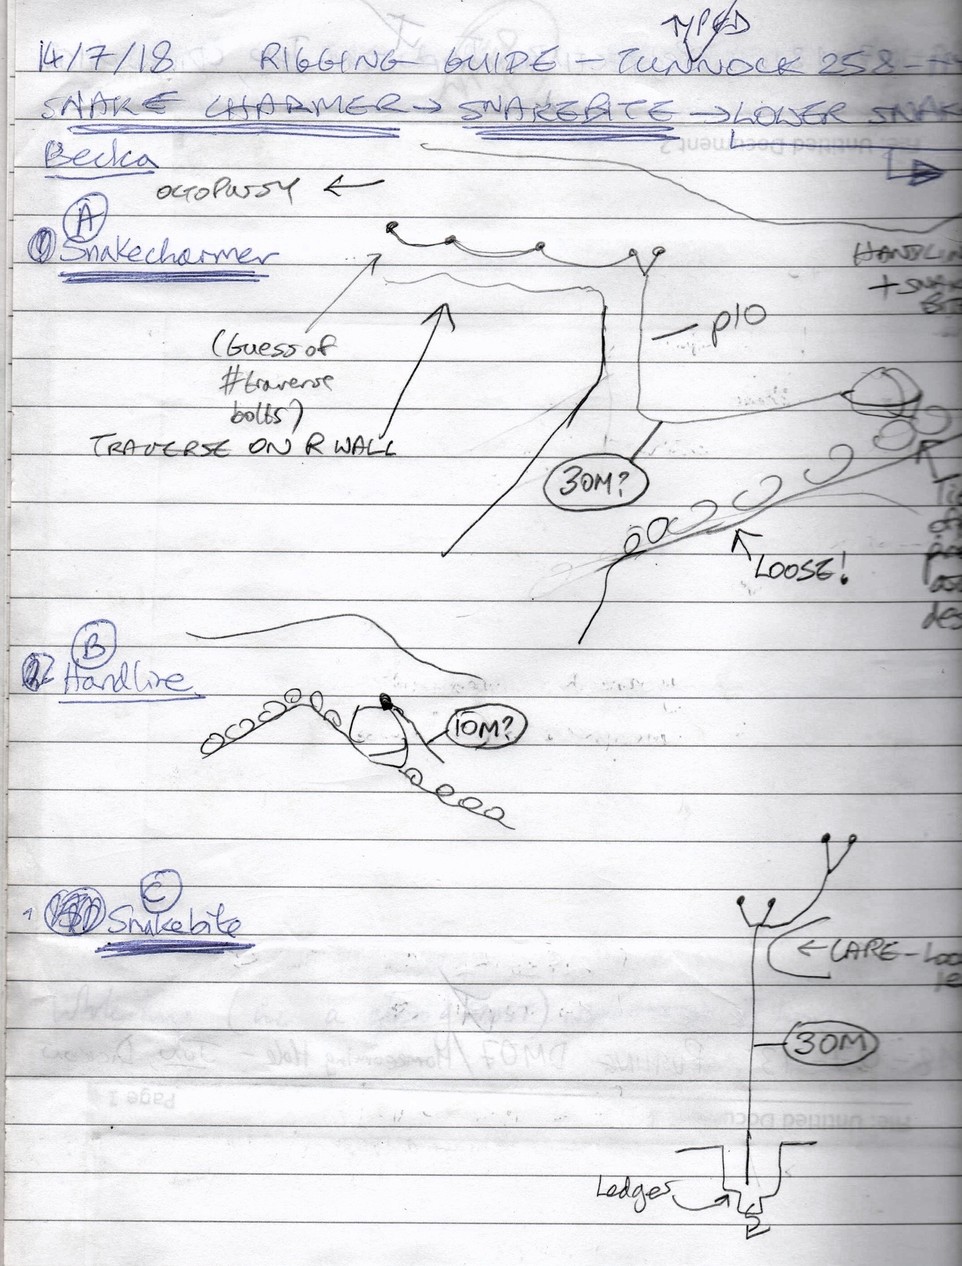 TYPED
14/7/18 RIGGING GUIDE - TUNNOCK 258 -
SNAKE CHARMER → SNAKEBITE → LOWER SNAK
Becka
OCTOPUSSY ←
A
Snakecharmer
HANDLIN
+ SNAK
BIT
p10
(Guess of
# traverse
bolts)
TRAVERSE ON R WALL
30M?
LOOSE!
des
B
Handline
10M?
C
Snakebite
← CARE - LOO
le
30M
Ledges